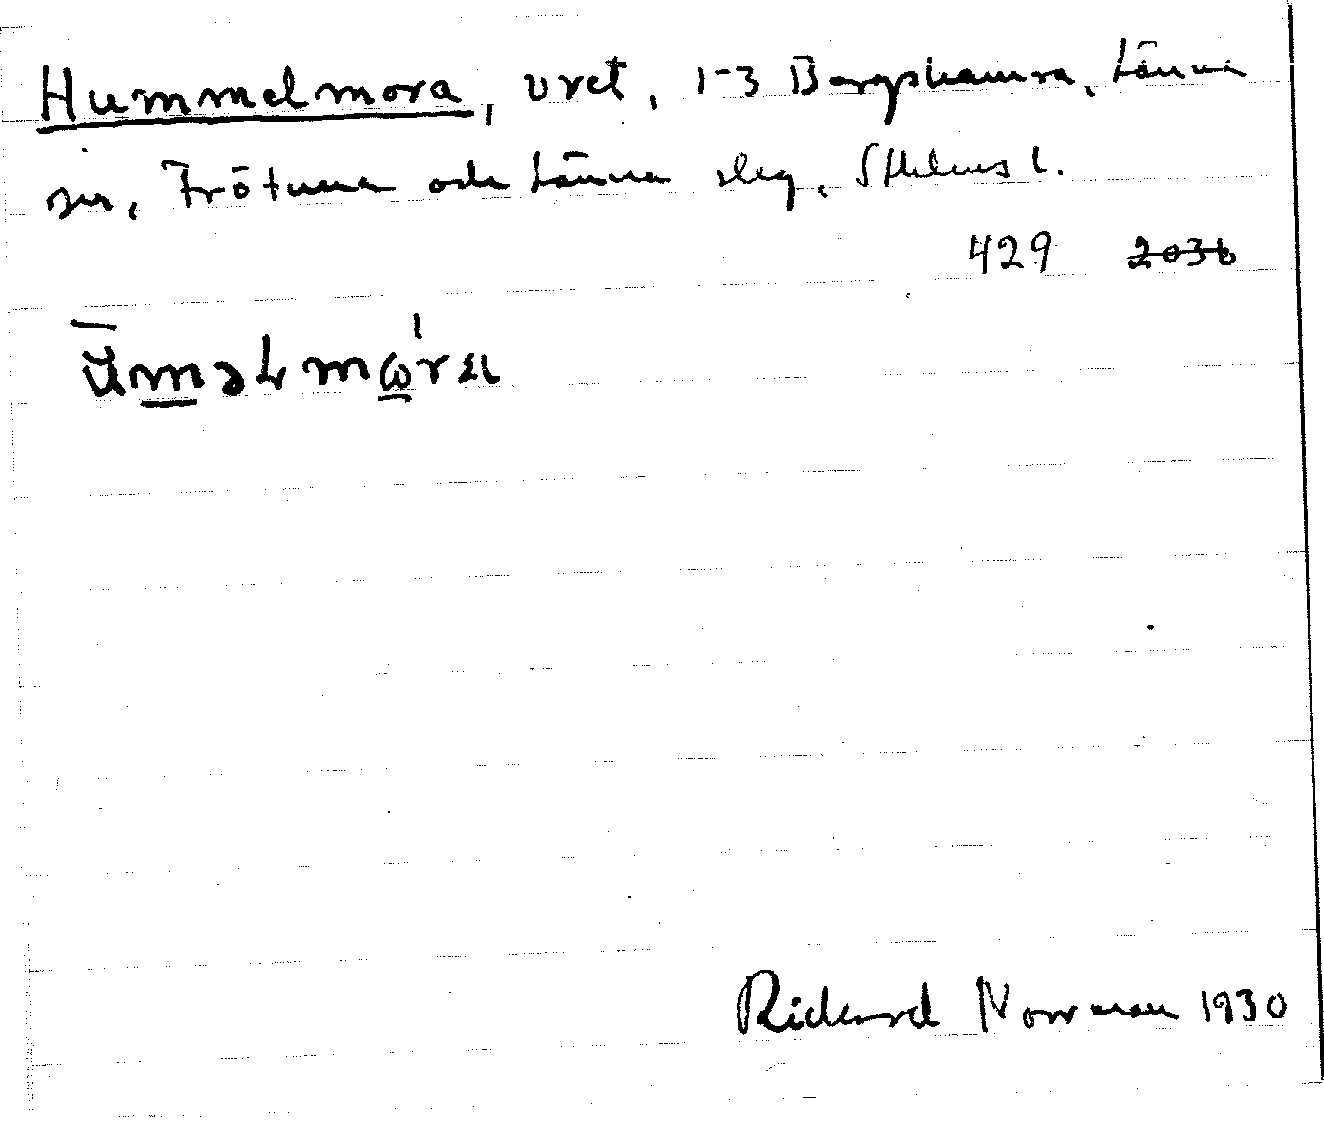 Hummelmora, vret, 1-3 Bergshamra, Länna
sn, Frötuna och Länna slg, Sthlms l.
429 2036
Rickard Norrman 1930